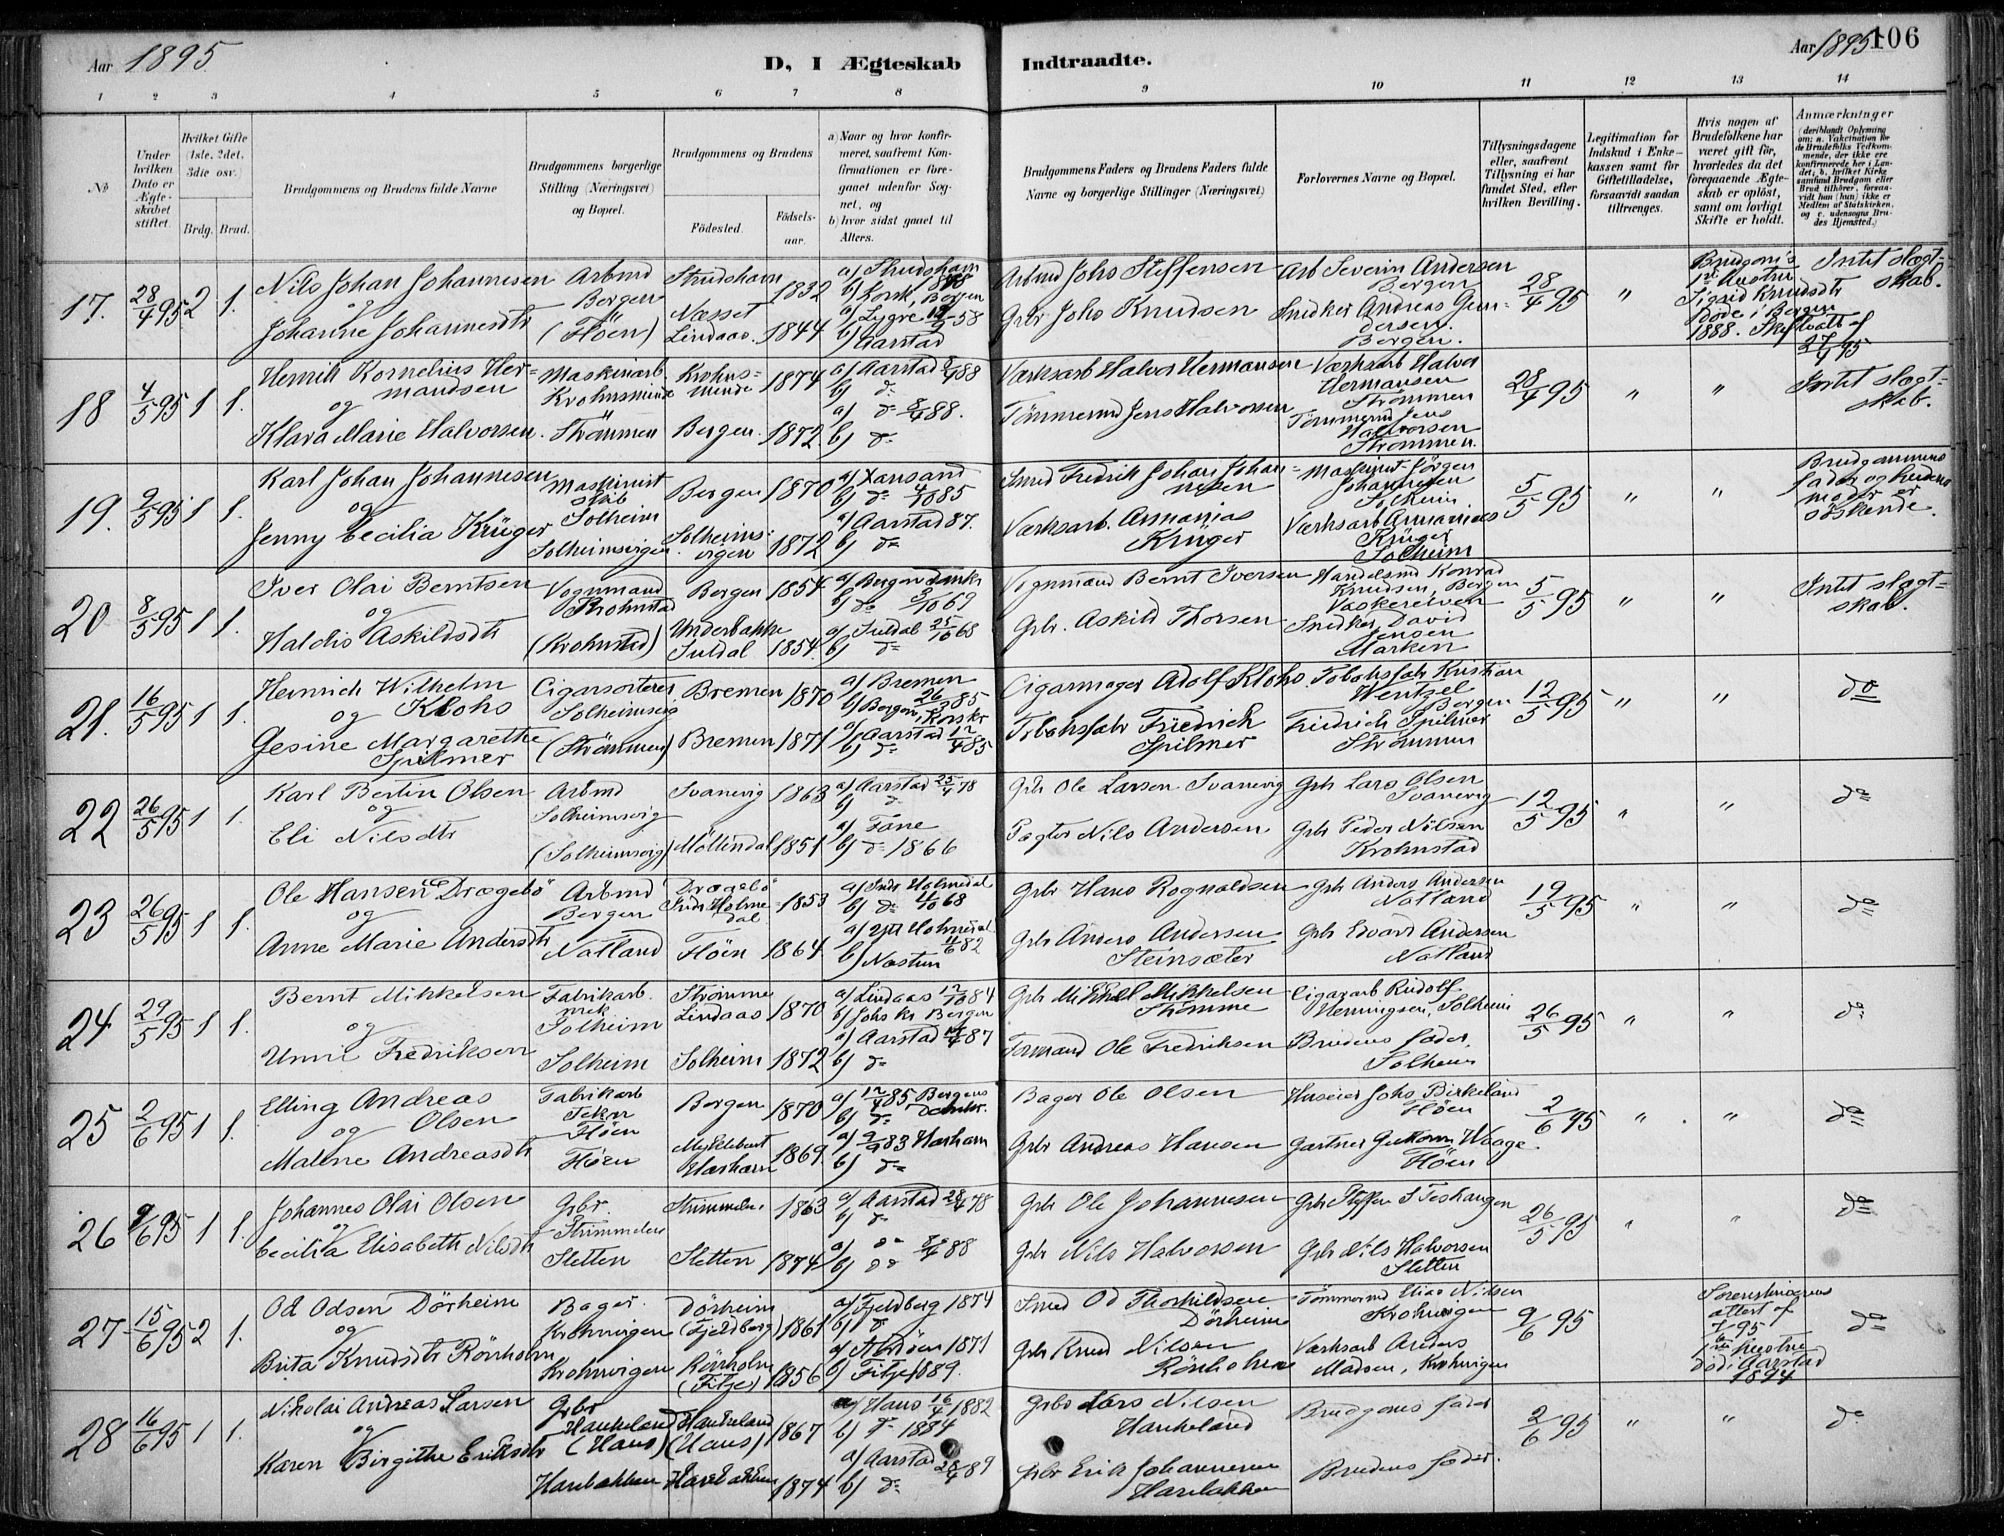 Aar 1895. D, I Ægteskab Indtraadte. Aar 1895 106
1 2 3 4 5 6 7 8 9 10 11 12 13 14
No
Under hvilken Dato er Ægteskabet stiftet.
Hvilket Gifte (1ste, 2det, 3die osv.)
Brdg. Brud.
Brudgommens og Brudens fulde Navne
Brudgommens borgerlige Stilling (Næringsvei) og Bopæl.
Brudgommens og Brudens
Fødested.
Fødsels-aar.
a) Naar og hvor konfirmeret, saafremt Konfirmationen er foregaaet udenfor Sognet, og
b) hvor sidst gaaet til Alters.
Brudgommens Faders og Brudens Faders fulde Navne og borgerlige Stillinger (Næringsvei)
Forlovernes Navne og Bopæl.
Tillysningsdagene eller, saafremt Tillysning ei har fundet Sted, efter hvilken Bevilling.
Legitimation for Indskud i Enkekassen samt for Giftetilladelse, forsaavidt saadan tiltrænges.
Hvis nogen af Brudefolkene har været gift før, hvorledes da det foregaaende Ægteskab er opløst, samt om lovligt Skifte er holdt.
Anmærkninger
17. 28/4 95 2 1.
Nils Johan Johannesen
og
Johanne Johannesdtr
Arbmd
Bergen
(Flöen)
Strudshavn 1832
Næsset
Lindaas. 1844
a) Strudshavn
b) Korsk, Bergen
a) Lygre
b) Aarstad
Arbmd Johs Steffensen
Grbr Johs Knudsen
Arb Severin Andersen
Bergen
Snedker Andreas Gundersen
Bergen.
28/4 95 "
Brudgom's
1ste Hustru
Sigrid Knudsdtr
Döde i Bergen
1888.
Intet slægtskab.
18 4/5 95 1 1.
Henrik Kornelius Hermandsen
og
Klara Marie Halvorsen.
Maskinarb
Krohnsminde
Strömmen
Krohnsminde 1874
Bergen. 1872
a) Aarstad 8/4 88
b) do
a) do 8/4 88.
b) do
Værksarb Halvor Hermansen
Tömmermd Jens Halvorsen
Værksarb Halvor
Hermansen
Strömmen
Tömmermd Jens
Halvorsen
Strömmen.
28/4 95 " "
Intet slægtskab.
19. 9/5 95 1 1.
Karl Johan Johannesen
og
Jenny Cecilia Krüger
Maskinist
Solheim
Solheimsvigen
Bergen 1870
Solheimsvigen 1872
a) Xansand
b) do 4/10 85
a) Aarstad 87.
b) do
Smed Fredrik Johan Johannesen
Værksarb. Annanias
Krüger
Maskinist Jörgen
Johannesen
Solheim
Værksarb Annanias
Krüger
Solheim
5/5 95 " "
Brudgommens
fader og brudens
moder er
söskende.
20 8/5 95 1 1.
Iver Olai Berntsen
og
Haldis Askildsdtr
Vognmand
Krohnstad
(Krohnstad)
Bergen 1854
Underbakke
Suldal 1854.
a) Bergen Domkr
b) do 3/10 69
a) Suldal 25/10 68
b) do
Vognmand Bernt Iversen
Grbr. Askild Thorsen
Handelsmd Konrad
Knudsen, Bergen
Vaskerelven
Snedker David
Jensen
Marken
5/5 95 " "
Intet slægtskab.
21. 16/5 95 1 1.
Heinrich Wilhelm
og Klohs
Gesine Margarethe
Spilmer
Cigarsorterer
Solheimsvig
(Strömmen)
Bremen 1870
Bremen 1871
a) Bremen
b) Bergen, Korskr
a) Aarstad 12/4 85
b) do
Cigarmager Adolf Klohs
Tobaksfabr Friedrich
Spilmer
Tobaksfabr Kristian
Wentzel
Bergen
Friedrich Spilmer
Strömmen
12/5 95 " "
do
22 26/5 95 1 1.
Karl Bertin Olsen
og
Eli Nilsdtr
Arbmd
Solheimsvig
(Solheimsvig)
Svanevig 1863
Möllendal 1851
a) Aarstad 25/4 78
b) do
a) Fane
b) do 1866
Grbr Ole Larsen Svanevig
Pagter Nils Andersen
Grbr Lars Olsen
Svanevig
Grbr Peder Nilsen
Krohnstad
12/5 95 " "
do
23 26/5 95 1 1.
Ole Hansen Drægebö
og
Anne Marie Andersdtr
Arbmd
Bergen
Natland
Drægebö
Indr Holmedal 1853
Flöen 1864.
a) Indr Holmedal
b) do 4/10 68
a) Ytt Holmedal
b) Næstun
Grbr Hans Rognaldsen
Grbr Anders Andersen
Steinsæter
Grbr Anders Andersen
Natland
Grbr Edvard Andersen
Natland
19/5 95 " "
do
24 29/5 95 1 1.
Bernt Mikkelsen
og
Unni Fredriksen
Fabrikarb.
mek
Solheim
Solheim
Strömme
Lindaas 1870
Solheim 1872
a) Lindaas 12/10 84
b) Johs kr Bergen
a) Aarstad 87
b) do
Grbr Mikkel Mikkelsen
Strömme
Formand Ole Fredriksen
Cigararb Rudolf
Henningsen, Solheim
Brudens fader
Solheim
26/5 95 " "
do
25 2/6 95 1 1.
Elling Andreas
og Olsen
Malene Andreasdtr
Fabrikarb
Flöen
Flöen
Bergen 1870
Myklebust
Harham 1869.
a) 12/4 85 Bergens
b) do Domkr.
a) 9/9 83 Harham
b) do
Bager Ole Olsen
Grbr Andreas Hansen
Huseier Johs Birkeland
Flöen
Gartner Guttorm Waage
Flöen
2/6 95 " "
do
26 9/6 95 1 1.
Johannes Olai Olsen
og
Cecilia Elisabeth Nilsdtr
Grbr.
Strimmelen
Sletten
Strimmelen 1863
Sletten 1874
a) Aarstad 28/4 78
b) do
a) do 88
b) do
Grbr Ole Johannesen
Grbr Nils Halvorsen
Grbr Steffen
Grbr Nils Halvorsen
Sletten
26/5 95 " "
do
27 15/6 95 2 1.
Od Odsen Dörheim
og
Brita Knudsdtr Rönholm
Bager.
Krohnvigen
Krohnvigen
Dörheim
(Fjeldberg) 1861
Rönholm
(Fitje) 1856
a) Fjeldberg 1874
b) do
a) 1871
b) Fitje 1889.
Smed Od Thorkildsen
Dörheim
Grbr Knud Nilsen
Rönholm
Tömmermd Elias Nilsen
Krohnvigen
Værksarb Anders
Madsen, Krohnvigen
9/6 95
Sorenskriverens
attest af
95
1ste hustru
död i Aarstad
1894
do
28 16/6 95 1 1.
Nikolai Andreas Larsen
og
Karen Birgithe Eriksdtr
Grbr
Haukeland
(Haus)
Harebakken
Haukeland
(Haus) 1867
Harebakken 1874
a) Haus 16/4 1882
b) do 1884
a) Aarstad 28/4 89
b) do
Grbr Lars Nilsen
Haukeland
Grbr Erik Johannesen
Harebakken
Brudgoms fader
Brudens fader.
2/6 95 " "
do